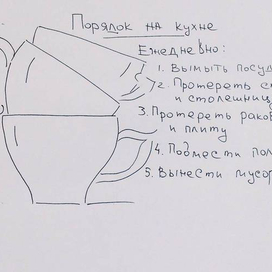 Порядок на кухне
Ежедневно:
1. Вымыть посуд
2. Протереть с
и столешниц
3. Протереть раков
и плиту
4. Подмести пол
5. Вынести мусор